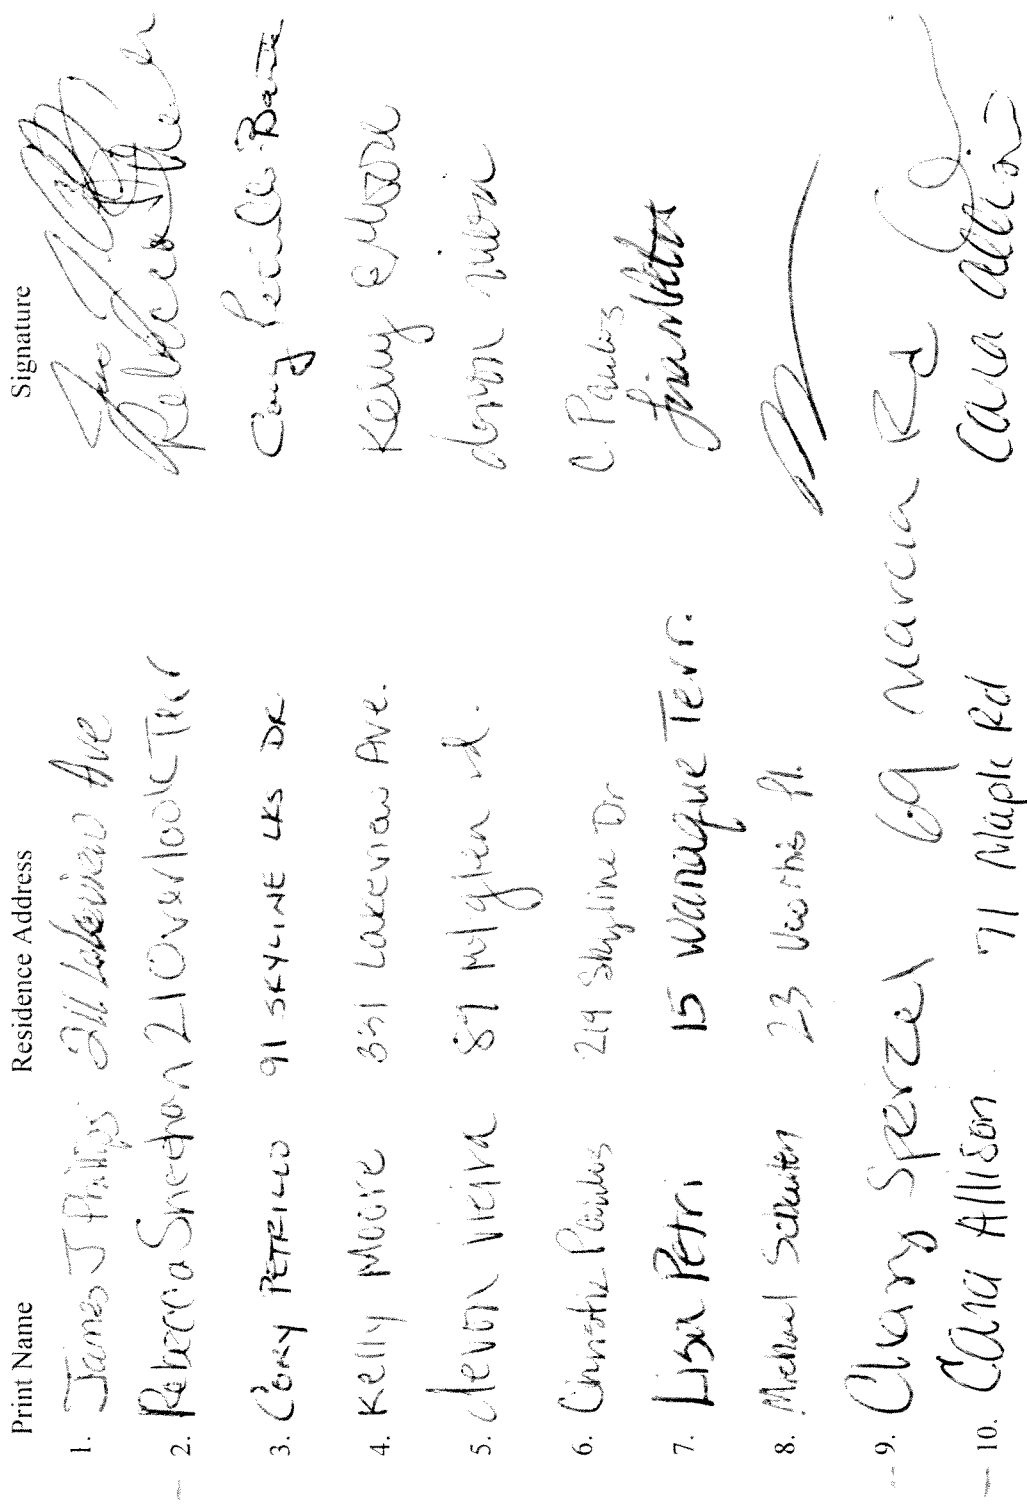 Print Name Residence Address Signature
1. James J Phillips 211 Lakeview Ave
2. Rebecca Sneethan 21 Overlook Terr Rebecca
3. CORY PETRILLO 91 SKYLINE LKS DR Cory Petrillo
4. Kelly Moore 351 Lakeview Ave. Kelly Moore
5. devon vieira 89 rd. devon
6. Christie Paulus 219 Skyline Dr C. Paulus
7. Lisa Petri 15 Wanaque Terr. Lisa Petri
8. Michael 23 Pl.
9. Sperzel 69 Marcia Rd
10. Cara Allison 71 Maple Rd Cara Allison